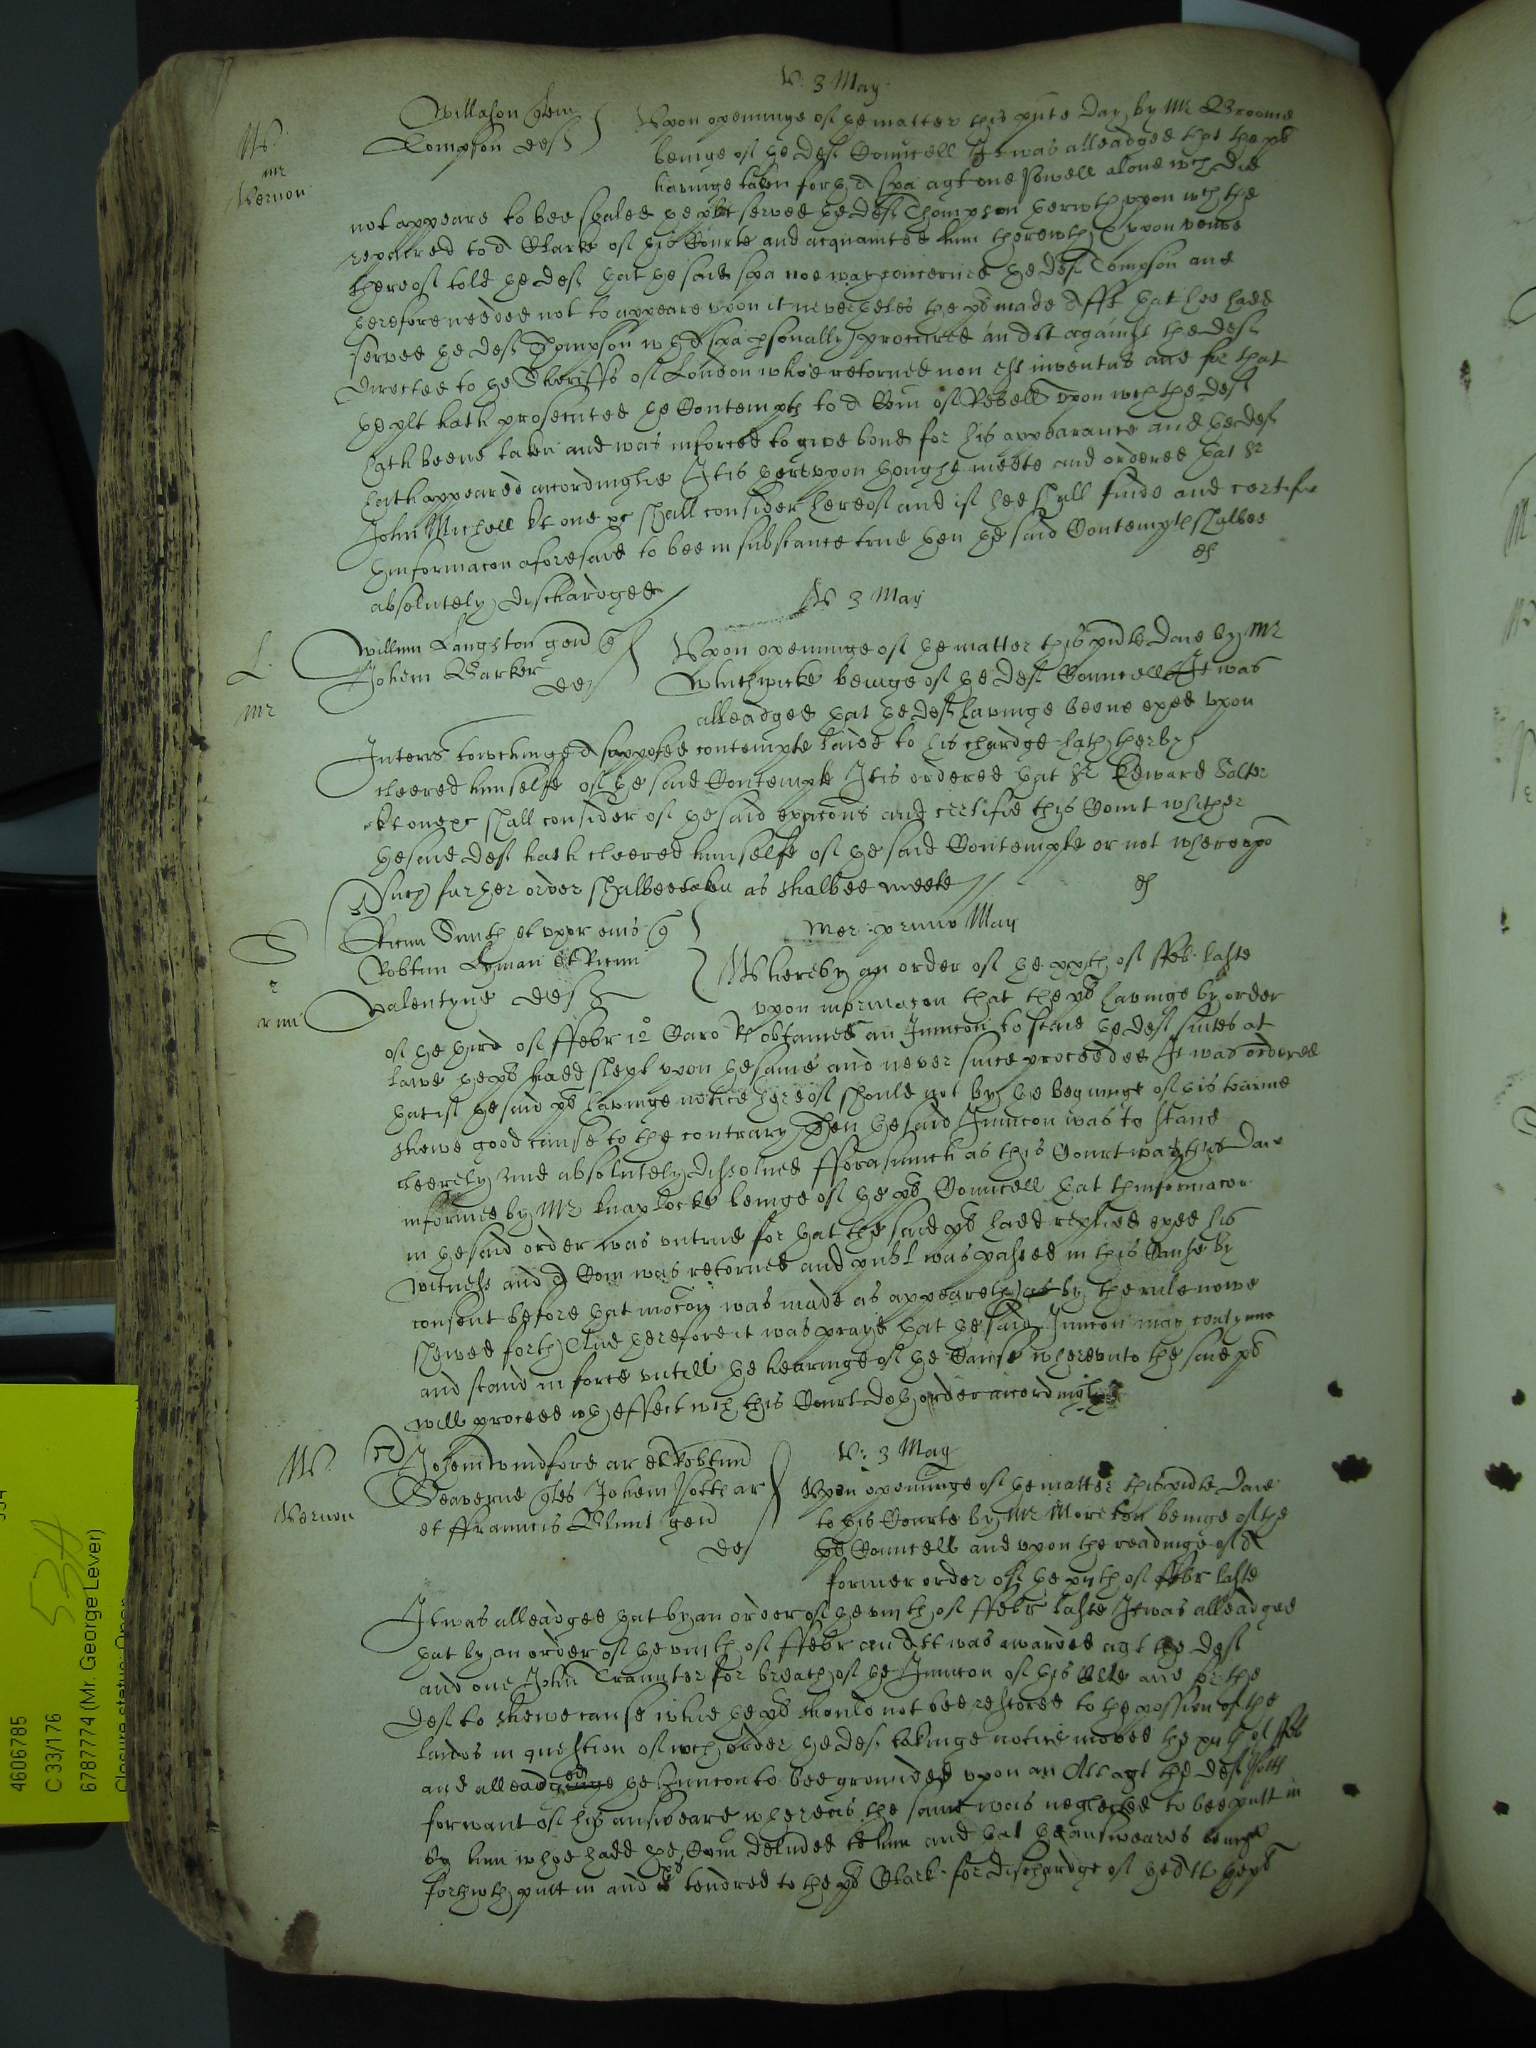 V: 3 May
W
mr
Vernon
Willason quer
Tompson def
Vpon openinge of ye matter this pnte day by Mr Broome
beinge of ye def Councell It was alleadged that the plt
havinge taken forth a spa agt one Powell alone wch did
not appeare to bee sealed ye plt served ye def Thompson yerwth vpon wch the
repaired to a Clarke of this Courte and acquainted him therewth vpon veiwe
thereof told ye def yat ye said spa noe way concerned ye def Tompson and
yerefore needed not to appeare vpon it nevertheles the plt made afft yat hee hadd
served ye def Thompson wth spa psonally procured an Att against the def
directed to ye Sheriffs of London whoe retorned non est inventus and for that
ye plt hath prosecuted ye Contempt to a Com of Rebell vpon wch the def
hath beene taken and was inforced to give bond for his appearance and ye def
hath appeared accordinglie It is herevpon thought meete and ordered yat Sr
John Michell kt one &c shall consider hereof and if hee shall finde and certifie
thinformacon aforesaid to bee in substance true then ye said Contempt shalbee
absolutely dischardged
V 3 May
L
mr
Willim Langston gen q
Johem Barker
def
Vpon openinge of ye matter this pnte Daie by Mr
Whitwicke beinge of ye def Councell It was
alleadged yat ye def havinge beene exed vpon
Interrs towchinge a supposed contempte laied to his chardge hath therby
cleered himselfe of ye said Contempt It is ordered yat Sr Edward Salter
kt one &c shall consider of ye said exacons and certifie this Court whither
ye said def hath cleered himselfe of ye said Contempte or not wherevpo
such further order shalbee taken as shalbee meete
S
Ricum Smith et vxor eius q
Robtum Lyman et Ricum
Valentyne def
Mer: primo May
Whereby an order of ye xxth of ffeb: laste
vpon informacon that the plt havinge by order
of ye third of ffebr 12o Caro R obtained an Iniuncon to staie ye def suites at
lawe ye plt hadd slept vpon ye same and never since proceeded It was ordered
yat if ye said plt havinge notice hereof should not by ye begininge of this tearme
shewe good cause to the contrary Then ye said Iniuncon was to stand
cleerely and absolutely dissolued fforasmuch as this Court was this Daie
informed by Mr Knaplocke beinge of ye plt Councell yat thinformacon
in ye said order was vntrue for yat the said plt hadd replied exed his
witness and ye Com was retorned and publ was passed in this Cause by
consent before yat mocon was made as appeareth by the rule nowe
shewed forth And therefore it was prayd yat ye said Iniuncon may contynue
and stand in force vntill ye hearinge of ye Cause wherevnto the said plt
will proceed wth effect wch this Court doth order accordingly
W
Vernon
Johem Windford ar et Robtum
Seaverne qtes Johem Pott ar
et ffrancis Blunt gen
def
V: 3 May
Vpon openinge of ye matter this pnte Daie
to this Courte by Mr Moreton beinge of the
plt Councell and vpon the readinge of A
former order of ye xijth of ffebr laste
It was alleadged yat by an order of ye viijth of ffebr laste It was alleadged
yat by an order of ye viijth of ffebr an Att was awarded agt the def
and one John Traunter for breach of ye Iniuncon of this Crte and for the
def to shewe cause while ye plt should not bee restored to the possion of the
lands in question of wch order ye def takinge notice moved the xijth of ffeb
and alleadged ye Iniuncon to bee grounded vpon an Att agt the def Pott
for want of his answeare whereas the same was neglected to bee putt in
by him whoe hadd ye Com deluded to him and yat ye answeares beinge
forthwth putt in and tendred to the plt Clark for dischardge of ye Att ye plt
4606785
C 33/1176
6787774 (Mr. George Lever)
Closure status: Open
534